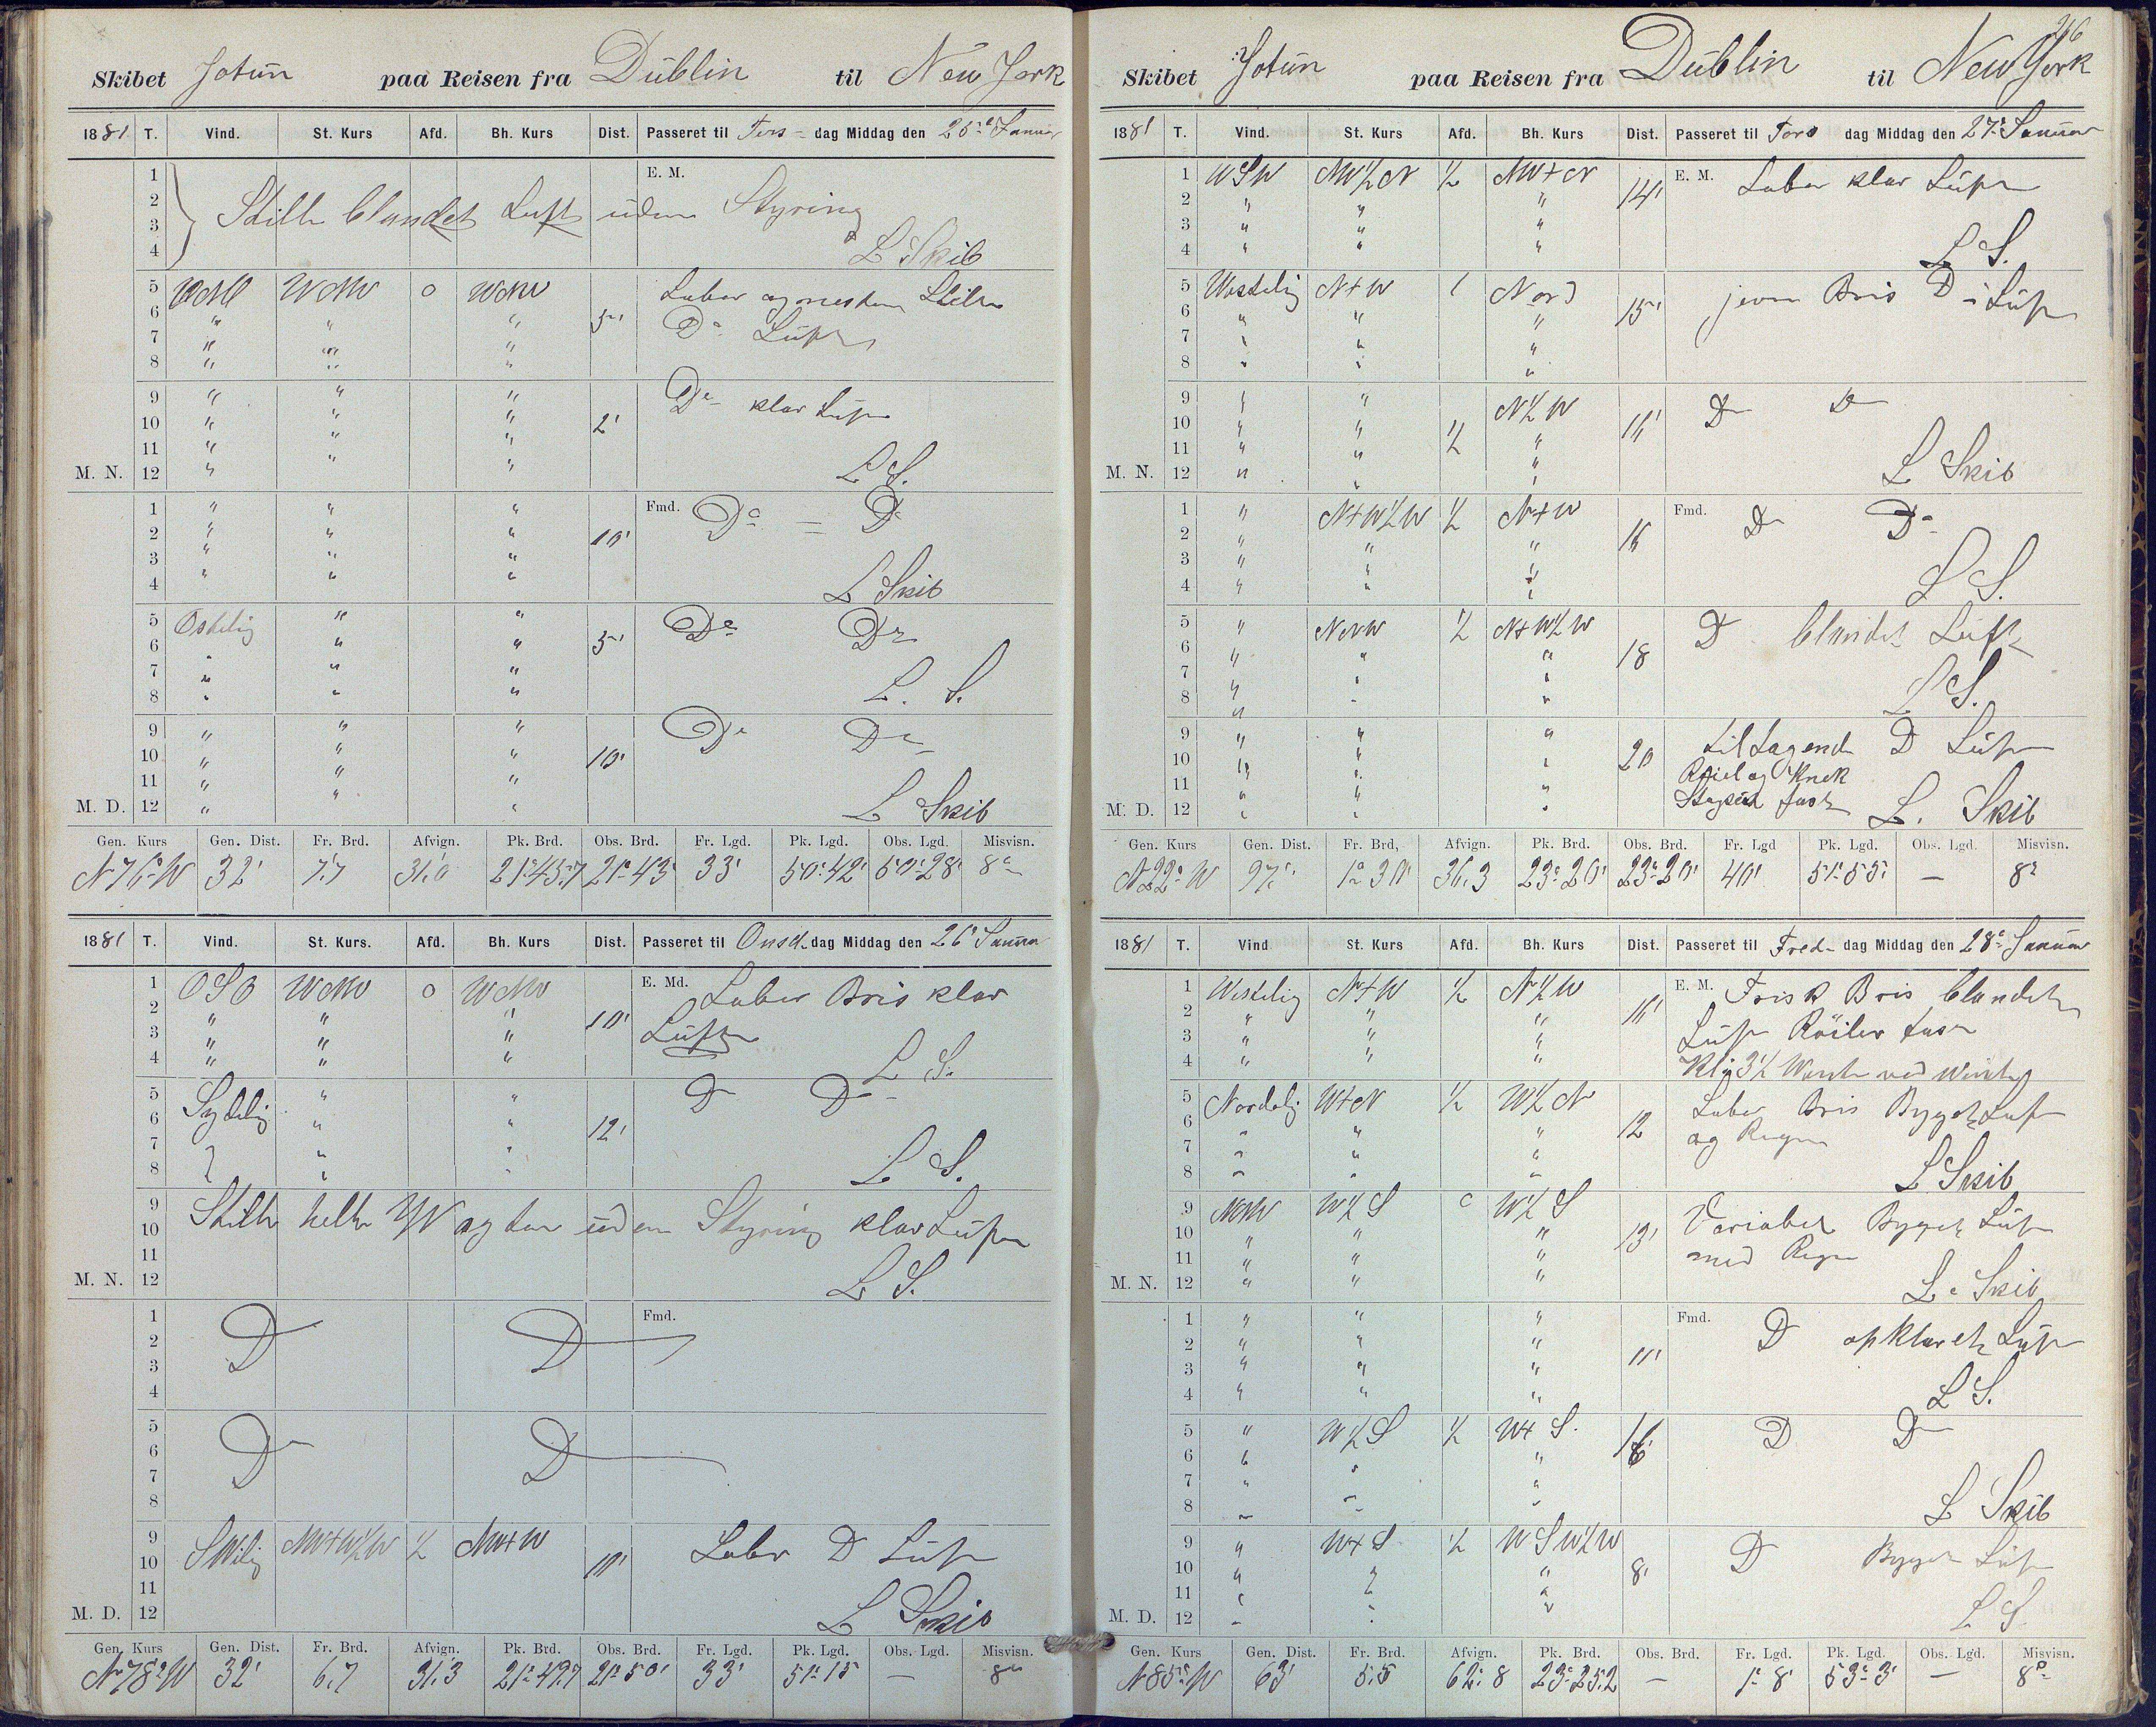 Skibet Jotün paa Reisen fra Düblin til New York
1881 T. Vind. St. Kurs Afd. Bh. Kurs Dist. Passeret til Tirs- dag Middag den 25de Januar
E. M.
1
2
3 Stille blandet Luft uden Styring
4 L Skib
5 WNW 0 WNW Laber og nesten Stille
6 " " " 5' Do Lüft
7 " " "
8 " " "
9 " " " Do klar Lüft
10 " " " 2'
11 " " "
M. N. 12 " " " L S.
1 " " " Fmd. Do = Do
2 " " " 10'
3 " " "
4 " " " L Skib
5 Ostelig " " Do Do
6 " " 5'
7 " " "
8 " " " L. S.
9 " " " Do Do
10 " " " 10'
11 " " "
M. D. 12 " " " L Skib
Gen. Kurs Gen. Dist. Fr. Brd. Afvign. Pk. Brd. Obs. Brd. Fr. Lgd. Pk. Lgd. Obs. Lgd. Misvisn.
N 76° W 32' 7.7 31.0 21°43.7 21°43' 33' 50°42' 50°28' 8°
1881 T. Vind. St. Kurs. Afd. Bh. Kurs Dist. Passeret til Onsd- dag Middag den 26' Januar
1 OSO WNW 0 WNW E. Md. Laber Bris klar
2 " " " 10' Lüft
3 " " "
4 " " " L S.
5 Sydelig " " Do Do
6 " " 12'
7 " "
8 " " L S.
9 Stille helle Wagten uden Styring klar Lüft
10
11
M. N. 12 L S.
1 Fmd.
2 Do Do
3
4
5
6 Do Do
7
8
9 SWlig NW+W½W ½ NW+W Laber Do Lüft
10 10'
11
M. D. 12 L Skib
Gen. Kurs Gen. Dist. Fr. Brd. Afvign. Pk. Brd. Obs. Brd. Fr. Lgd. Pk. Lgd. Obs. Lgd. Misvisn.
N 78° W 32' 6.7 31.3 21°49.7 21°50' 33' 51°15 — 8°
Skibet Jotün paa Reisen fra Düblin til New York
1881 T. Vind. St. Kurs Afd. Bh. Kurs Dist. Passeret til Tors dag Middag den 27' Januar
1 WSW NW½N ½ NW+N E. M. Laber klar Lüft
2 " " " 14'
3 " " "
4 " " " L S.
5 Westelig N+W 1 Nord jevn Bris Do Lüft
6 " " " 15'
7 " " "
8 " " "
9 " " N½W Do Do
10 " " 16'
11 " " ½ "
M. N. 12 " " " L Skib
1 " N+W½W ½ N+W Fmd. Do Do
2 " 16
3 " " "
4 " " " L S.
5 " NNW ½ N+W½W Do blandet Lüft
6 " " " 18
7 " "
8 " " " L S.
9 " " " tiltagende Do Lüft
10 " " " 20 Röiel og Knek
11 " " " Stagseil fast
M. D. 12 " " " L. Skib
Gen. Kurs Gen. Dist. Fr. Brd, Afvign. Pk. Brd. Obs. Brd. Fr. Lgd Pk. Lgd. Obs. Lgd. Misvisn.
N 22° W 97' 1°30' 36.3 23°20' 23°20' 40' 51°55' — 8°
1881 T. Vind St. Kurs Afd. Bh. Kurs Dist. Passeret til Fred- dag Middag den 28de Januar
1 Westelig N+W ½ N½W E. M. Frisk Bris blandet
2 " " " 16' Lüft Röiler fast
3 " " "
4 " " " Kl 3½ Vendte
5 Nordelig W+N ½ W½N Laber Bris Byget Luft
6 " " " 12 og Regn
7 " " "
8 " " " L Skib
9 NNW W½S 0 W½S Variabel Byget Lüft
10 " " " 13' med Regn
11 " " "
M. N. 12 " " " L. Skib
1 " " " Fmd. Do opklaret Lüft
2 " " " 11'
3 " " "
4 " " " L S.
5 " W½S ½ W+S. Do Do
6 " " "
7 " "
8 " " " L Skib
9 " W+S ½ WSW½W Do Byget Lüft
10 " " " 8'
11 " " "
M. D. 12 " " " L S.
Gen. Kurs Gen. Dist. Fr. Brd. Afvign. Pk. Brd. Obs. Brd. Fr. Lgd. Pk. Lgd. Obs. Lgd. Misvisn.
N 85° W 63' 5.5 62.8 23°25.2 — 1°8' 53°3' — 8°